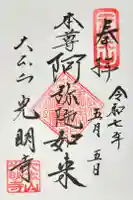 奉拝
令和七年
五月五日
本尊阿弥陀如来
光明寺